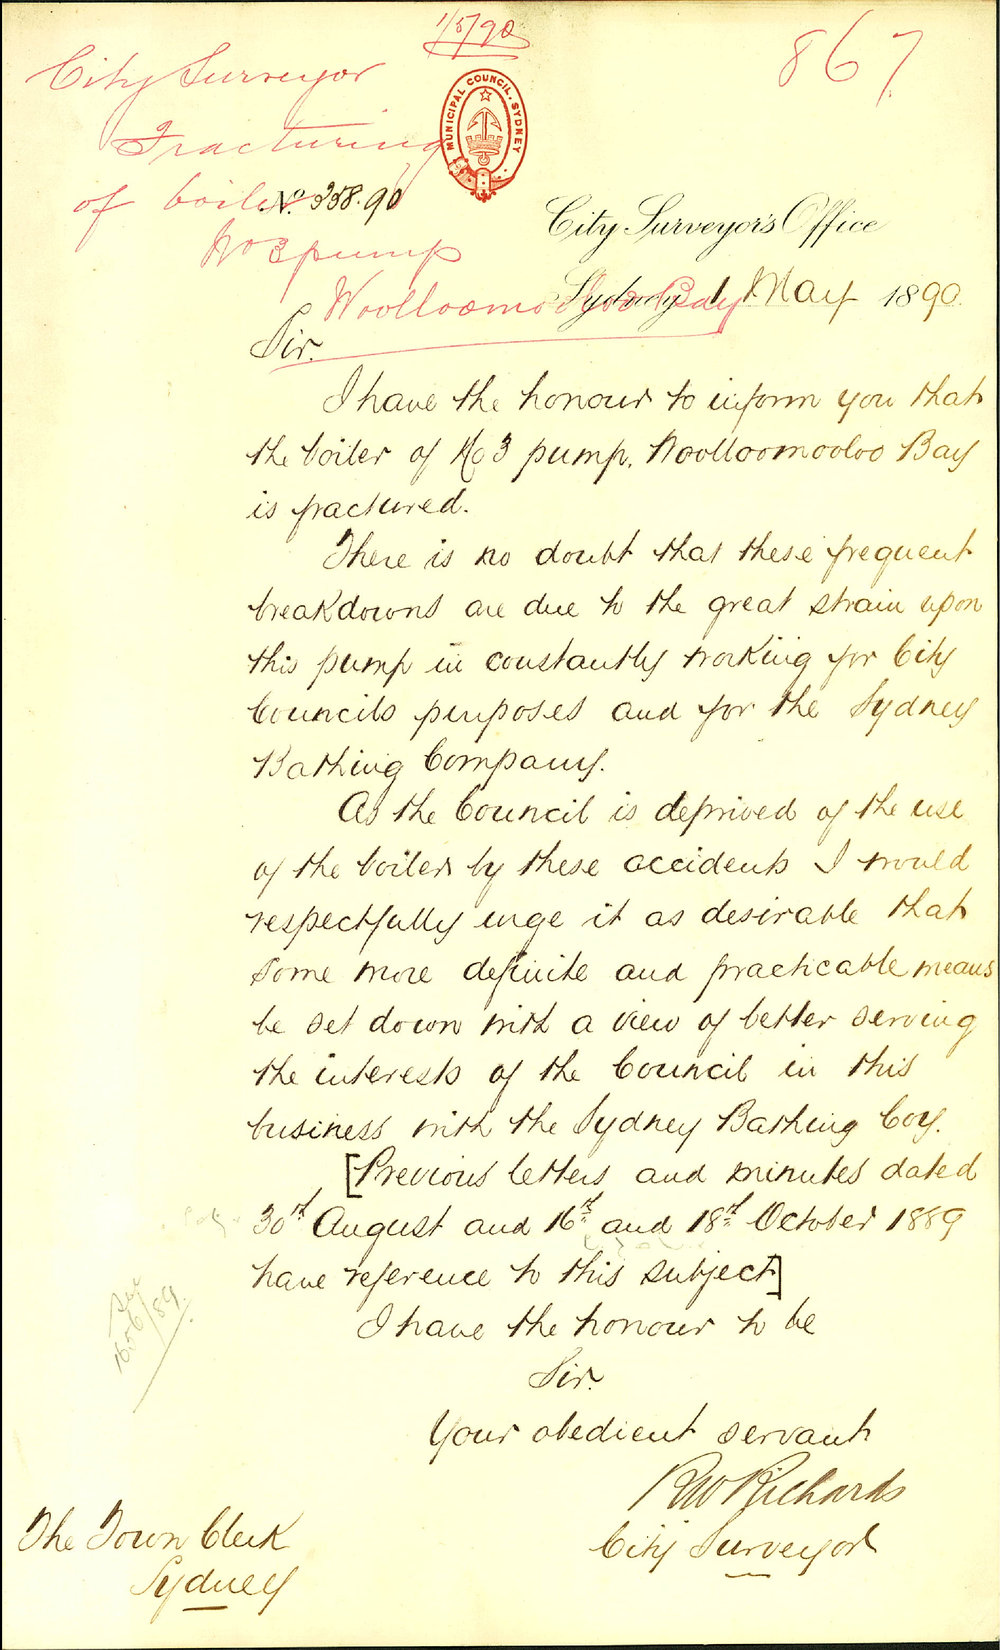 1/5/90
867
City Surveyor
Fracturing
of boiler
No 3 pump
Woolloomooloo Bay
MUNICIPAL COUNCIL, SYDNEY
No. 358.90
City Surveyor's Office
Sydney 1 May 1890.
Sir.
I have the honour to inform you that
the boiler of No 3 pump, Woolloomooloo Bay
is fractured.
There is no doubt that these frequent
breakdowns are due to the great strain upon
this pump in constantly working for City
Councils purposes and for the Sydney
Bathing Company.
As the Council is deprived of the use
of the boiler by these accidents I would
respectfully urge it as desirable that
some more definite and practicable means
be set down with a view of better serving
the interests of the Council in this
business with the Sydney Bathing Coy.
[Previous letters and minutes dated
30th August and 16th and 18th October 1889
have reference to this subject]
I have the honour to be
Sir.
Your obedient servant
RW Richards
City Surveyor
The Town Clerk
Sydney